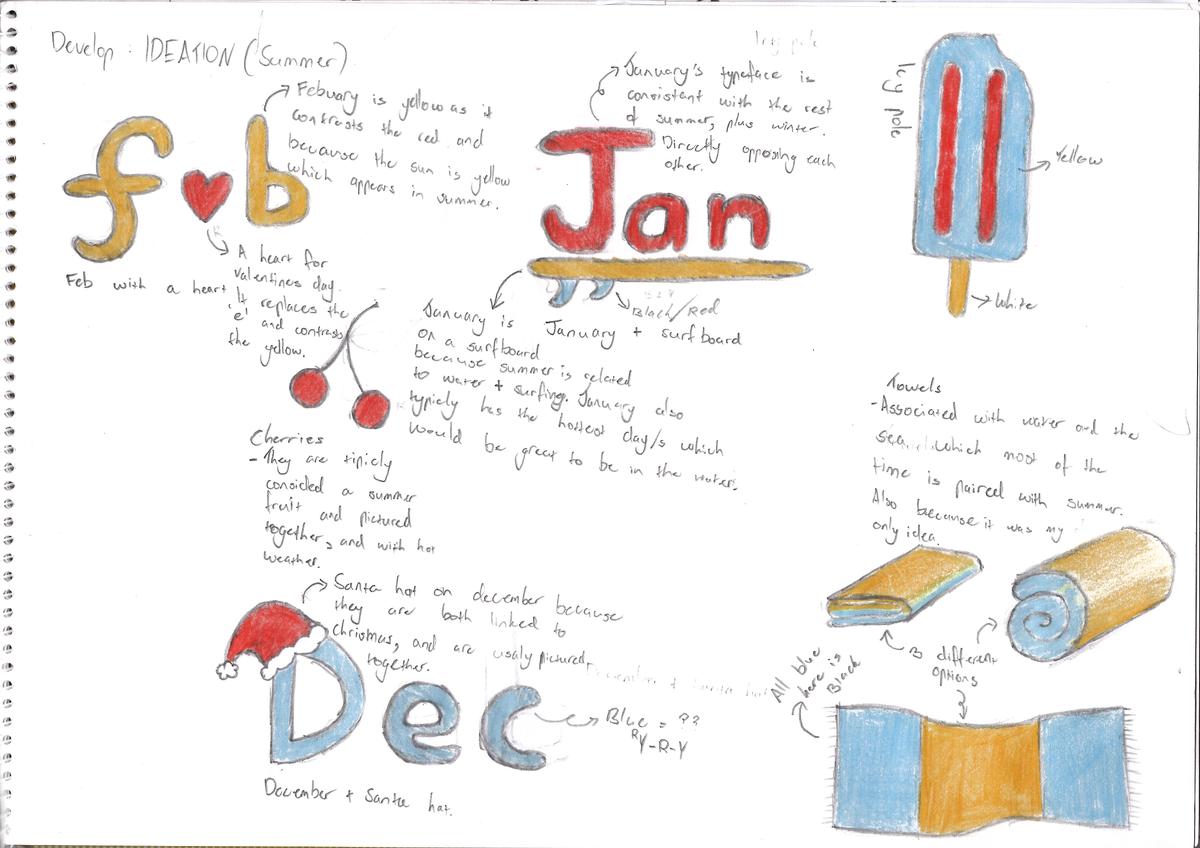 Develop : IDEATION (Summer)
Febuary is yellow as it
contrasts the red and
because the sun is yellow
which appears in summer.
f b
Feb with a heart
A heart for
valentines day.
It replaces the
'e' and contrasts
the yellow.
Icy pole
January's typeface is
consistant with the rest
of summer, plus winter.
Directly opposing each
other.
Jan
Black/Red
January + surfboard
January is
on a surfboard
because summer is related
to water + surfing. January also
typicly has the hottest day/s which
would be great to be in the water.
Icy pole
Yellow
White
Cherries
- They are tipicly
consided a summer
fruit and pictured
together, and with hot
weather.
Towels
- Associated with water and the
sea which most of the
time is paired with summer.
Also because it was my
only idea.
3 different
options
All blue
here is
Black
Santa hat on december because
they are both linked to
Chrismas, and are usaly pictured
together.
December + Santa hat
Dec
Blue = ??
R
Y-R-Y
December + Santa hat.